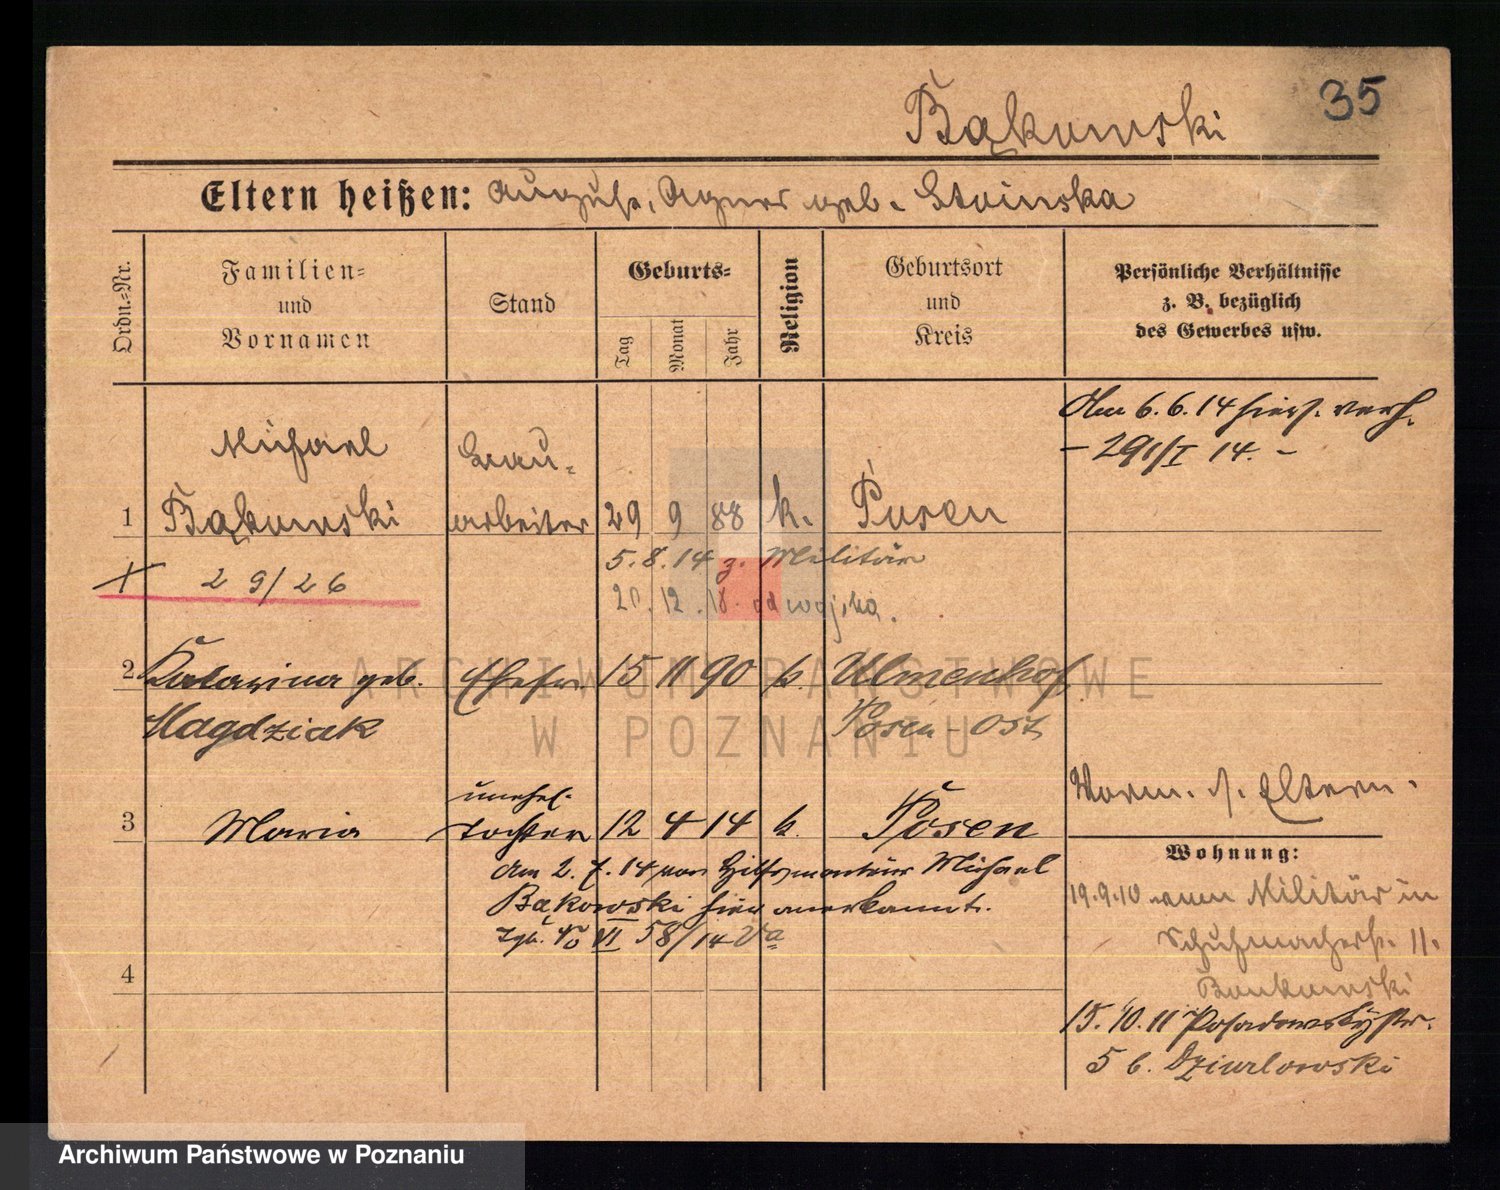 Bąkowski
35
Eltern heißen: August, Agnes geb. Stoinska
Ordn.-Nr.
Familien-
und
Vornamen
Stand
Geburts-
Tag
Monat
Jahr
Religion
Geburtsort
und
Kreis
Persönliche Verhältnisse
z. B. bezüglich
des Gewerbes usw.
Am 6.6.14 hiers. verh.
- 291/I 14. -
Michael
Bąkowski
Bau-
arbeiter
1
29 9 88 k. Posen
5.8.14 z. Militär
20.12.18 od wojska.
29/26
2 Katarina geb. Ehefr. 15 11 90 k. Ulmenhof
Magdziak
Posen-Ost
unehel.
3 Maria Tochter 12 4 14 k. Posen
Vorm. s. Eltern.
Am 2.7.14 von Hilfsmonteur Michael
Bąkowski hier anerkannt.
VI 58/14 Va
4
Wohnung:
19.9.10 vom Militär in
Schuhmacherstr. 11.
Bonkowski
15.10.11 Posadowskystr.
5 b. Dziurlowski
ARCHIWUM PAŃSTWOWE
W POZNANIU
Archiwum Państwowe w Poznaniu